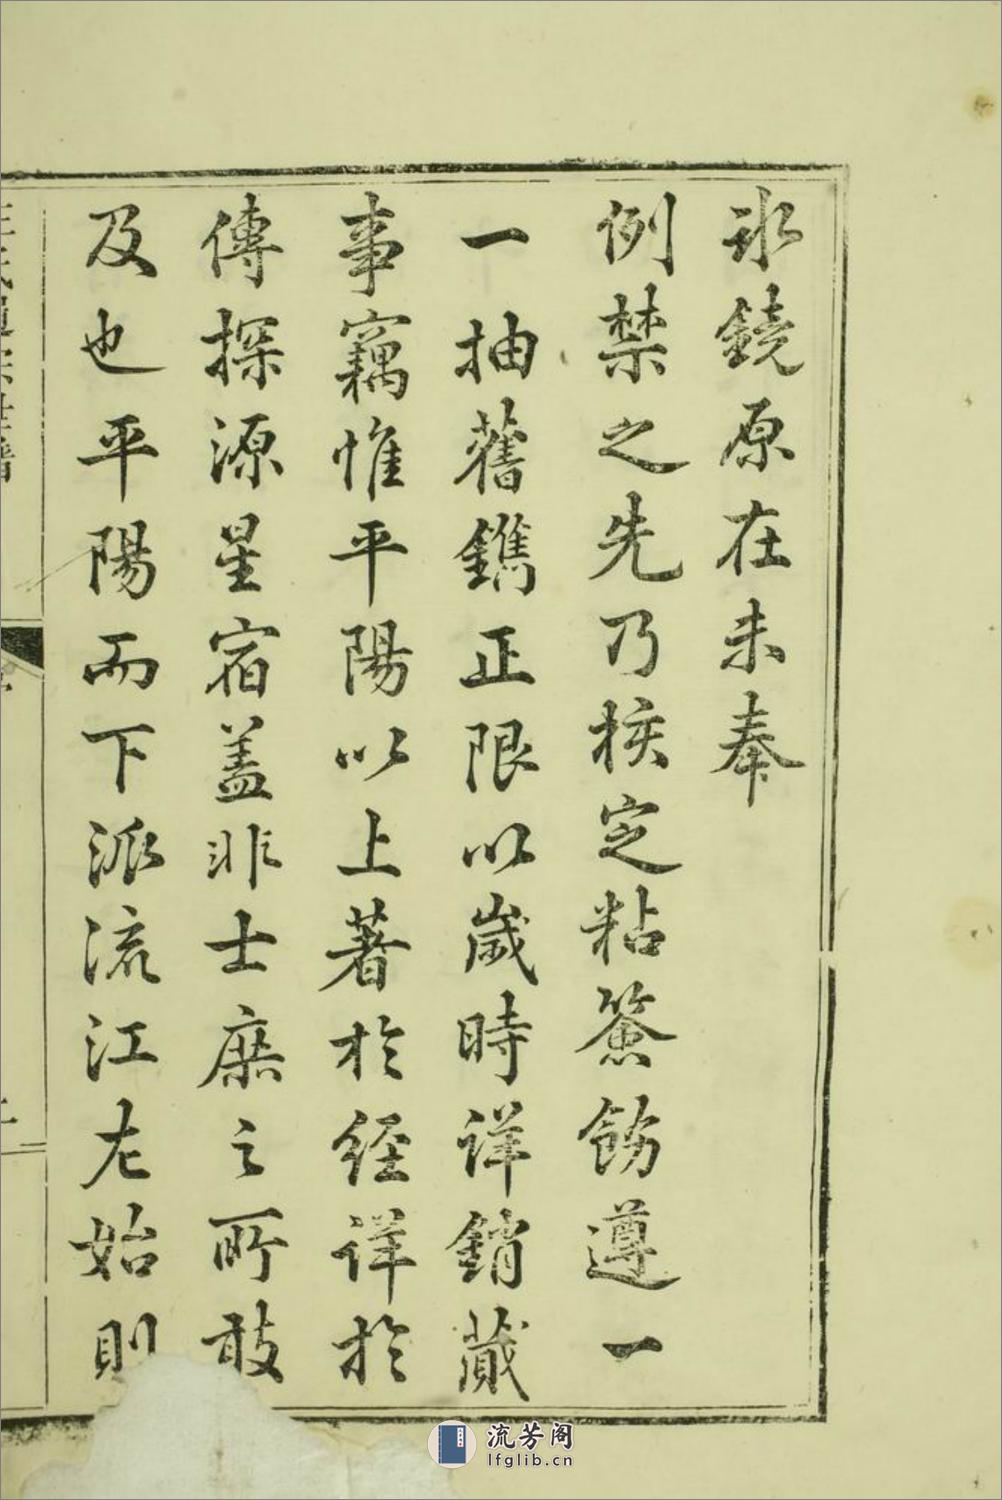 冰鏡原在未奉
例禁之先乃核定粘簽飭遵一
一抽舊鐫正限以歲時詳銷蕆
事竊惟平陽以上著於經詳於
傳探源星宿蓋非士庶之所敢
及也平陽而下派流江左始則
汪氏通宗世譜
流芳阁
lfglib.cn